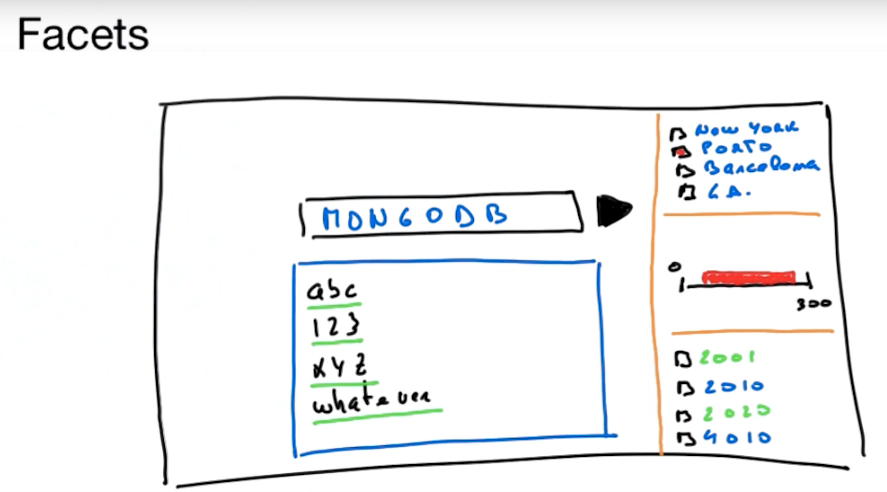 Facets
MONGODB
abc
123
xyz
whatever
New York
PORTO
Barcelona
L.A.
0
300
2001
2010
2020
4010